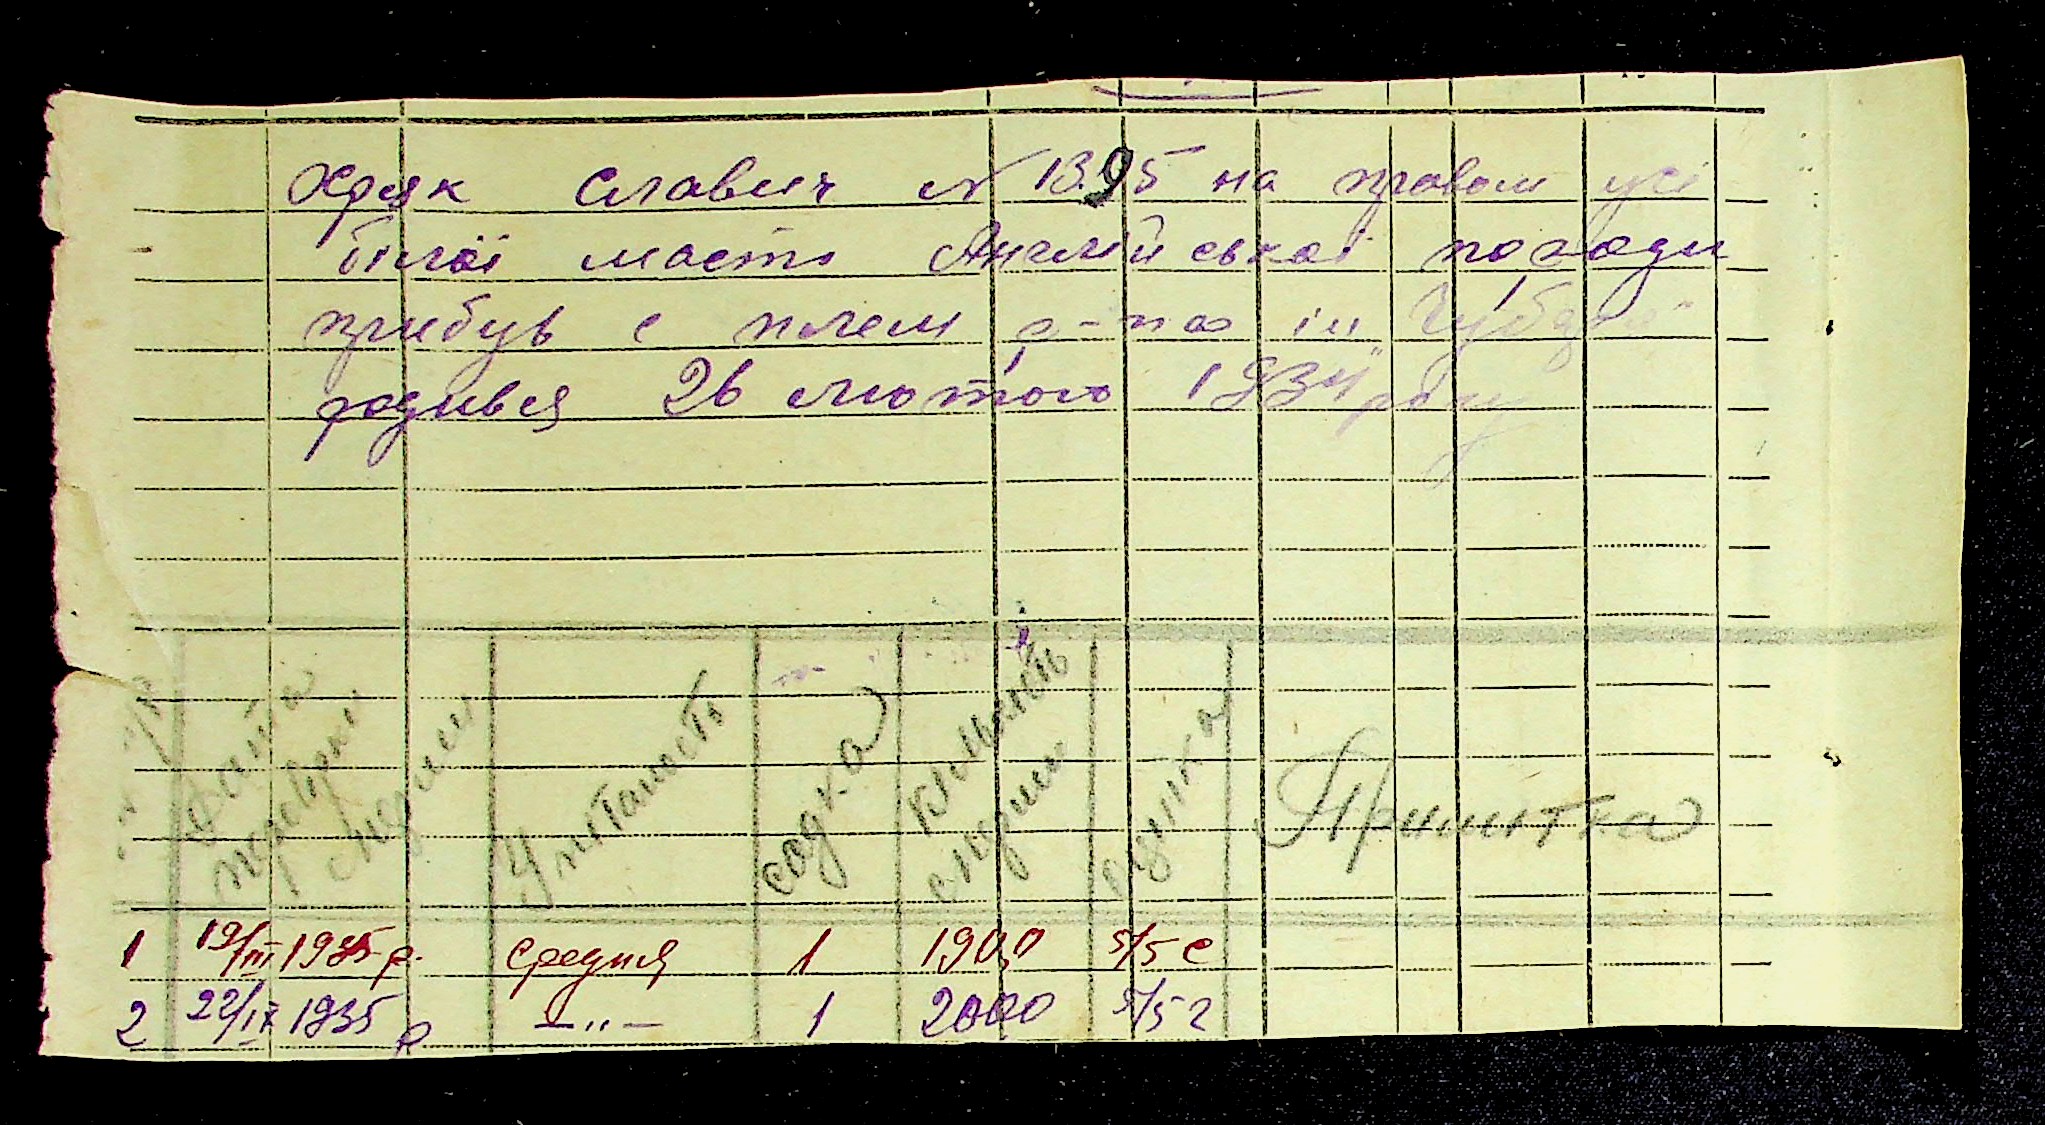 Хряк Славич № 1395 на правом усі
білої масті Англійської породи
прибув с плем р-па ім Чубаря
родився 26 лютого 1934 року
Дата перевірки спермы
Упитаність
садка
кількість сперми
оцінка
Примітка
1 19/III 1935 р. средняя 1 190,0 5/5 с
2 22/IX 1935 р – " – 1 200,0 5/5 г